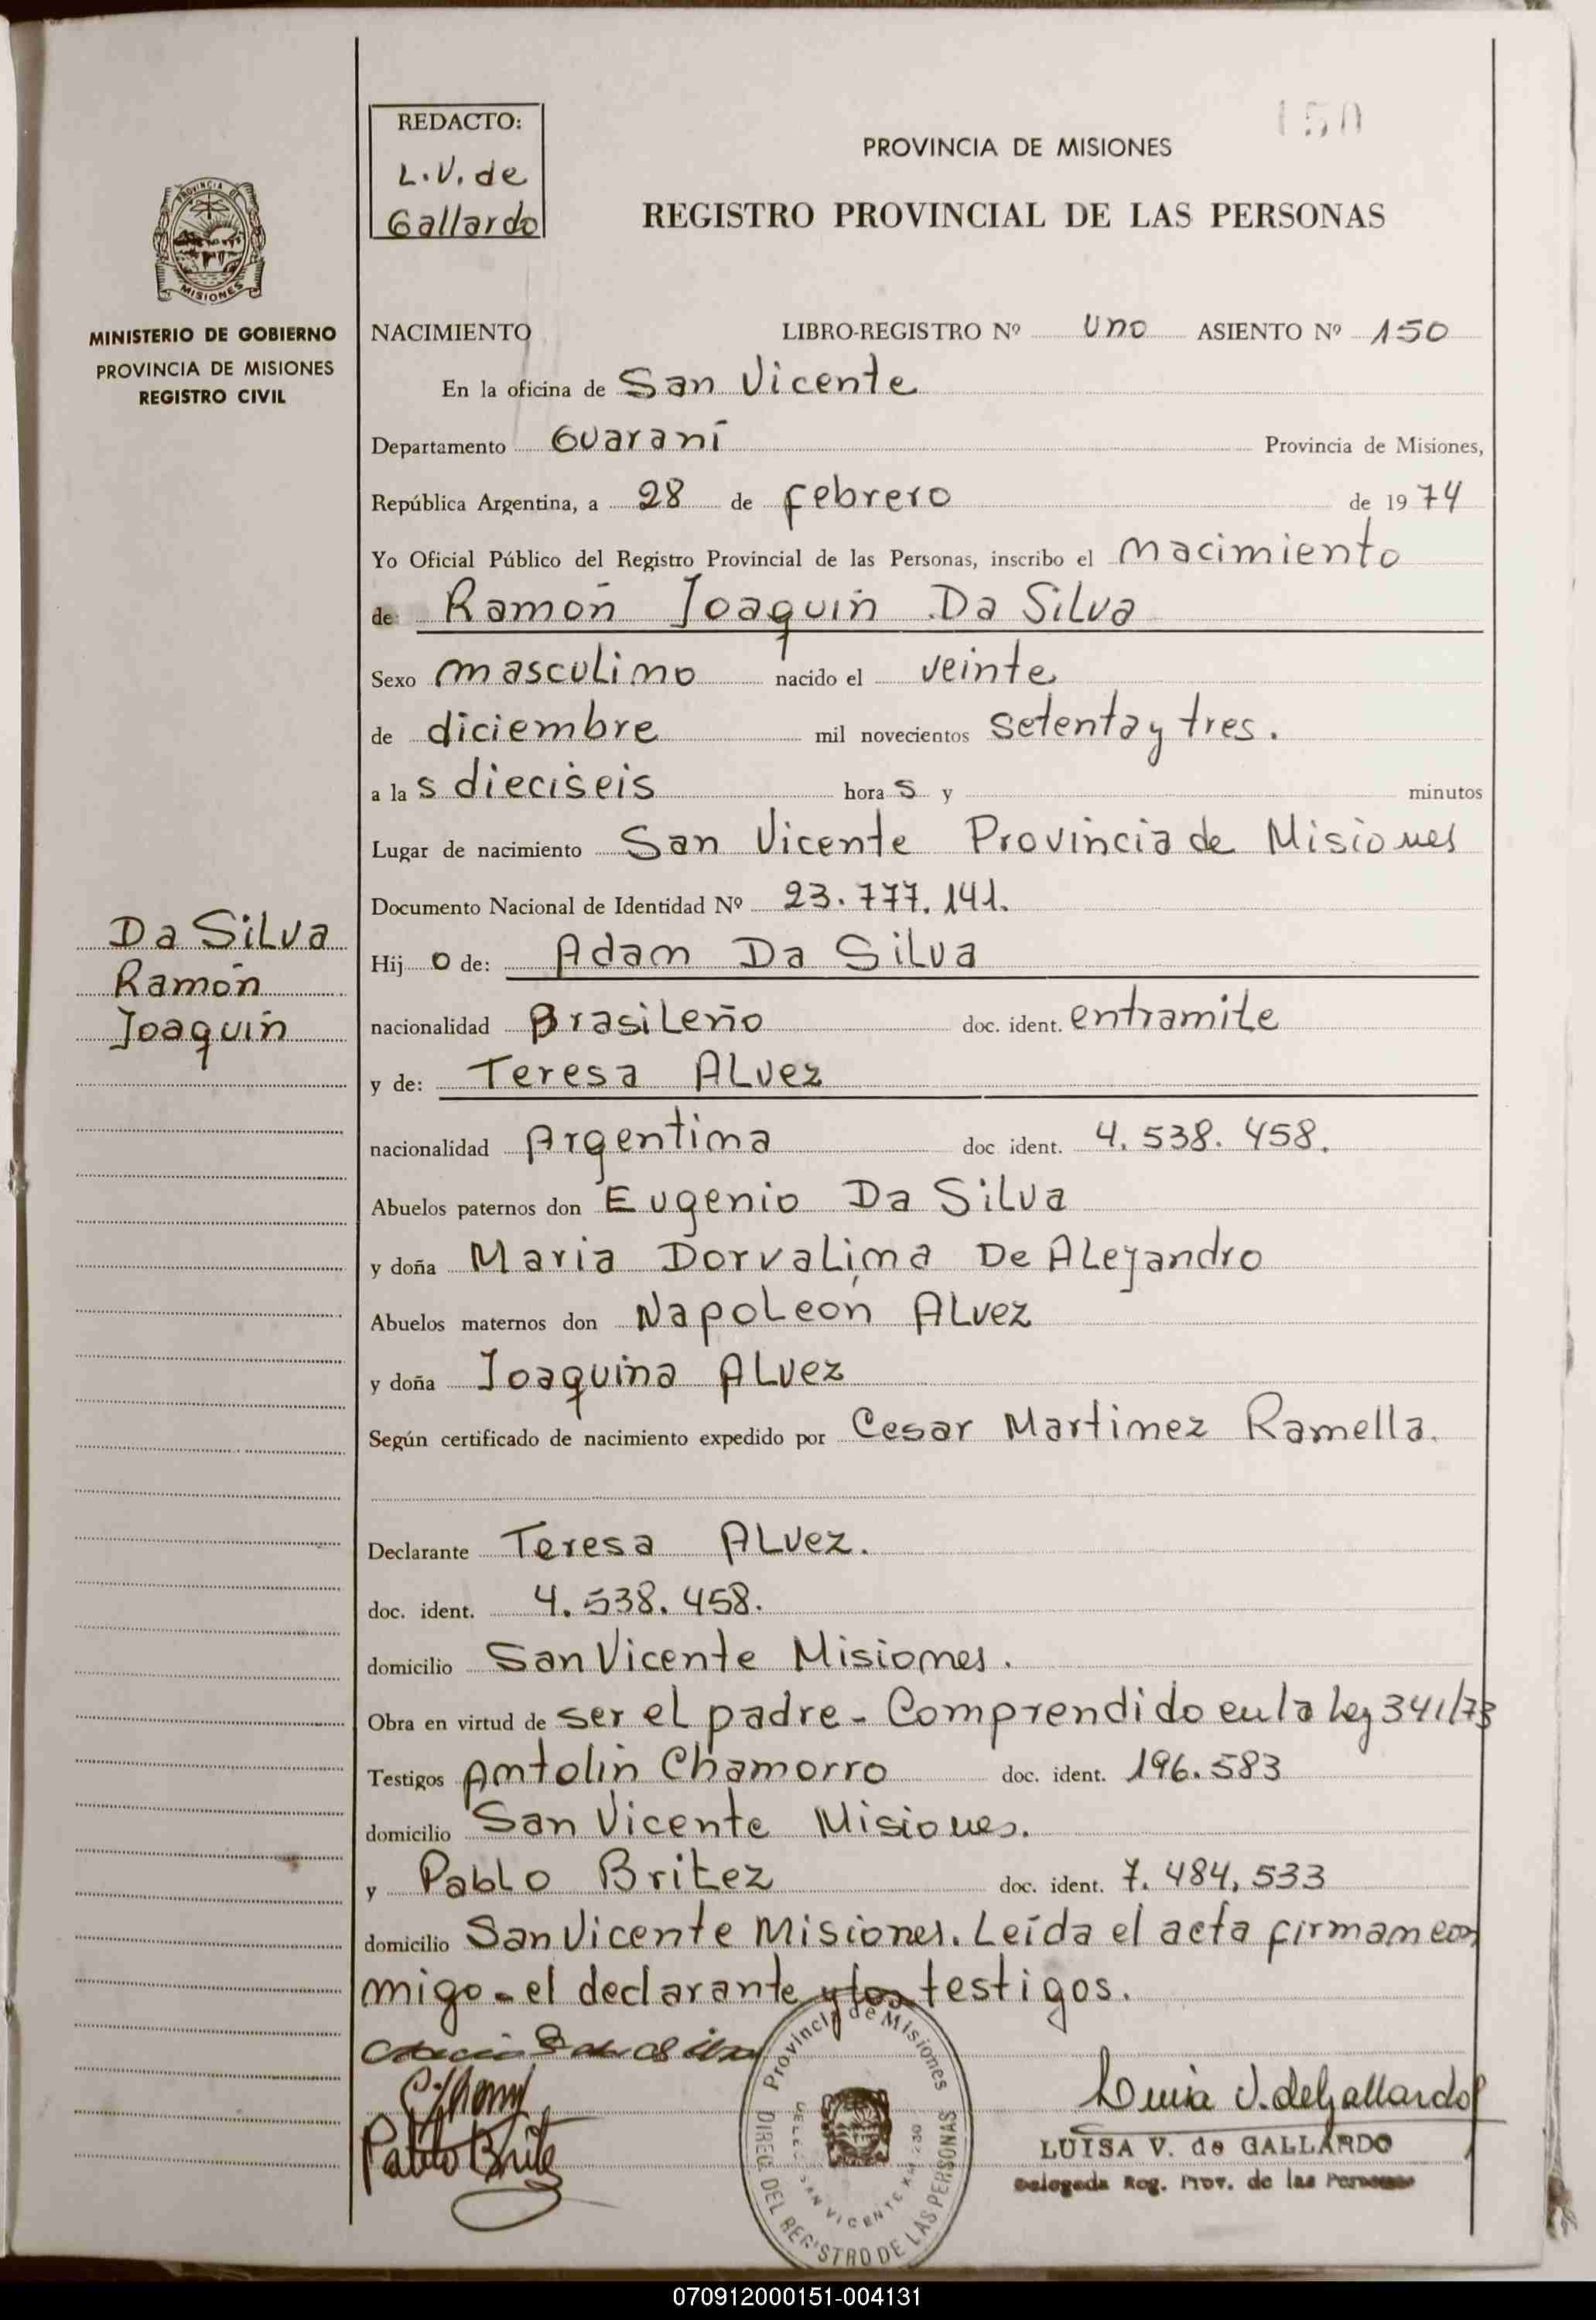 150
REDACTO:
L.V. de
Gallardo
PROVINCIA DE MISIONES
REGISTRO PROVINCIAL DE LAS PERSONAS
PROVINCIA DE
MISIONES
MINISTERIO DE GOBIERNO
PROVINCIA DE MISIONES
REGISTRO CIVIL
NACIMIENTO LIBRO-REGISTRO Nº uno ASIENTO Nº 150
En la oficina de San Vicente
Departamento Guaraní Provincia de Misiones,
República Argentina, a 28 de febrero de 1974
Yo Oficial Público del Registro Provincial de las Personas, inscribo el nacimiento
de: Ramón Joaquín Da Silva
Sexo masculino nacido el veinte
de diciembre mil novecientos setenta y tres.
a las dieciseis horas y minutos
Lugar de nacimiento San Vicente Provincia de Misiones
Documento Nacional de Identidad Nº 23.777.141.
Da Silva
Ramón
Joaquín
Hijo de: Adam Da Silva
nacionalidad Brasileño doc. ident. entramite
y de: Teresa Alvez
nacionalidad Argentina doc ident. 4.538.458.
Abuelos paternos don Eugenio Da Silva
y doña Maria Dorvalina De Alejandro
Abuelos maternos don Napoleón Alvez
y doña Joaquina Alvez
Según certificado de nacimiento expedido por Cesar Martinez Ramella.
Declarante Teresa Alvez.
doc. ident. 4.538.458.
domicilio San Vicente Misiones.
Obra en virtud de ser el padre - Comprendido en la Ley 341/73
Testigos Antolín Chamorro doc. ident. 196.583
domicilio San Vicente Misiones.
y Pablo Britez doc. ident. 7.484,533
domicilio San Vicente Misiones. Leída el acta firman con
migo - el declarante y los testigos.
Pablo Brite
Provincia de Misiones
DIREC. DEL REGISTRO DE LAS PERSONAS
SAN VICENTE
Luisa V. de Gallardo
LUISA V. de GALLARDO
Delegada Reg. Prov. de las Personas
070912000151-004131